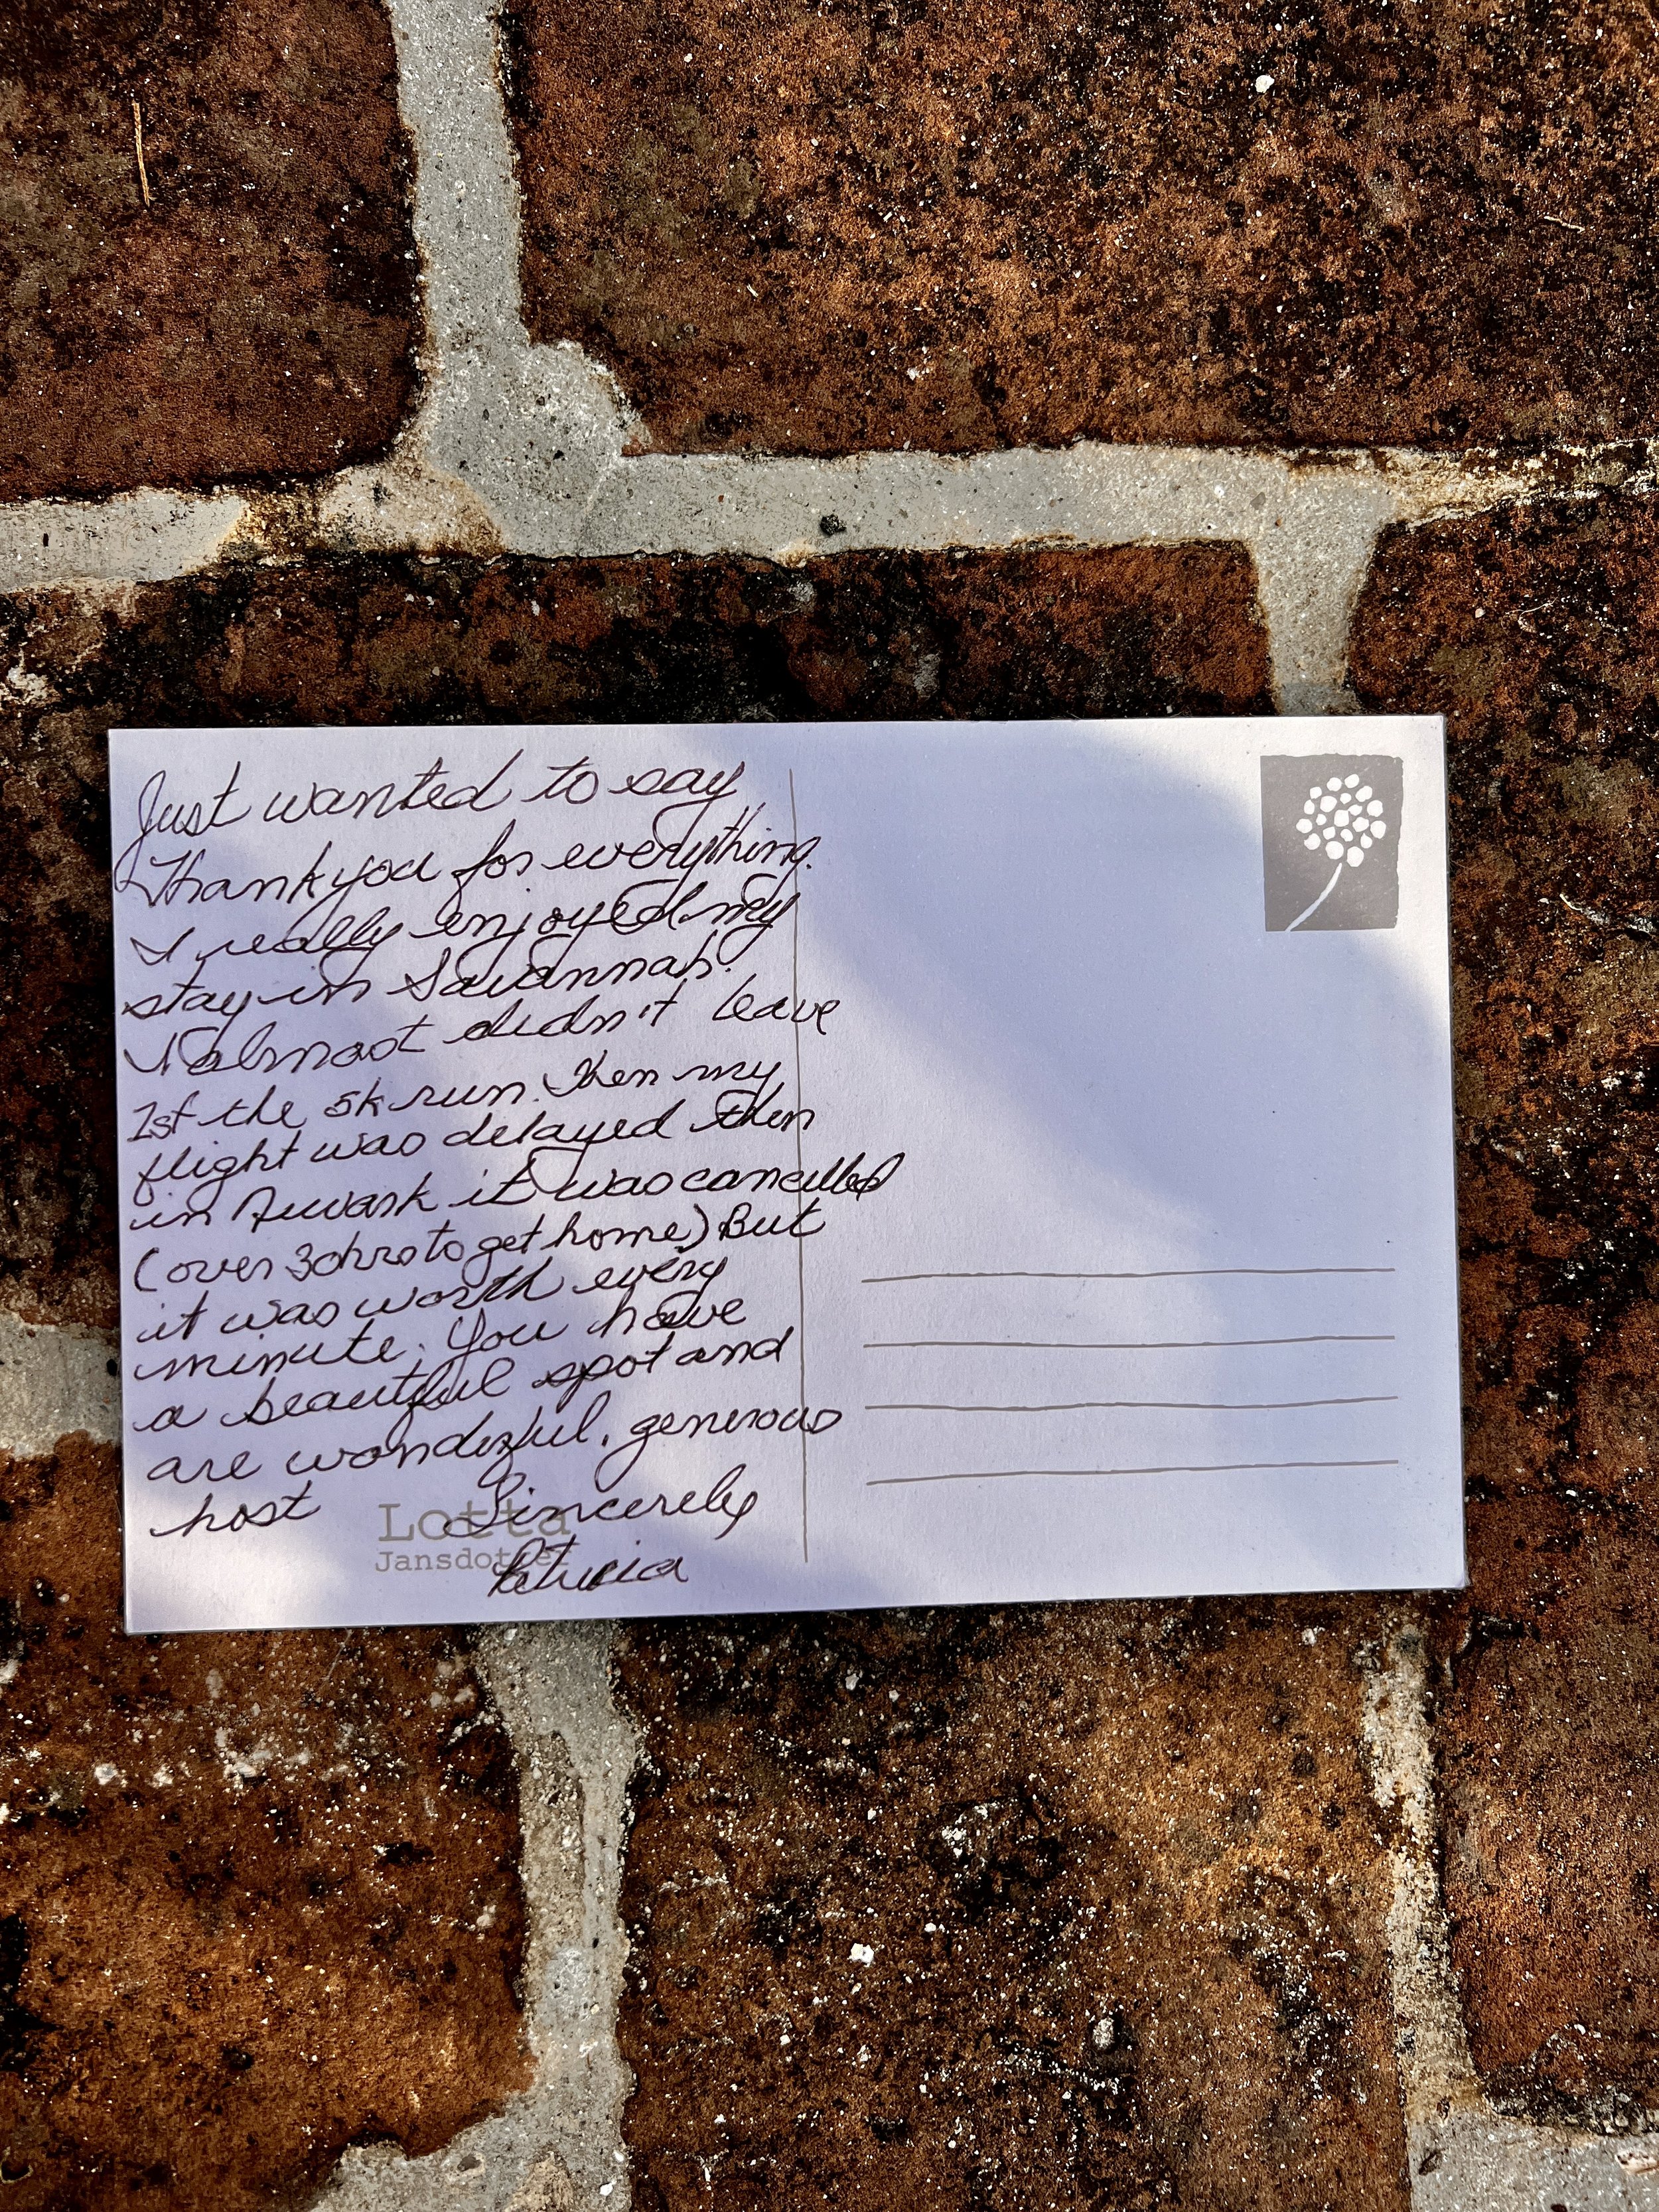 Just wanted to say
Thank you for everything.
I really enjoyed my
stay in Savannah.
I almost didn't leave
1st the 5k run. Then my
flight was delayed then
in Newark it was cancelled
(over 30hrs to get home) But
it was worth every
minute. You have
a beautiful spot and
are wonderful, generous
host
Sincerely
Patricia
Lotta
Jansdotter